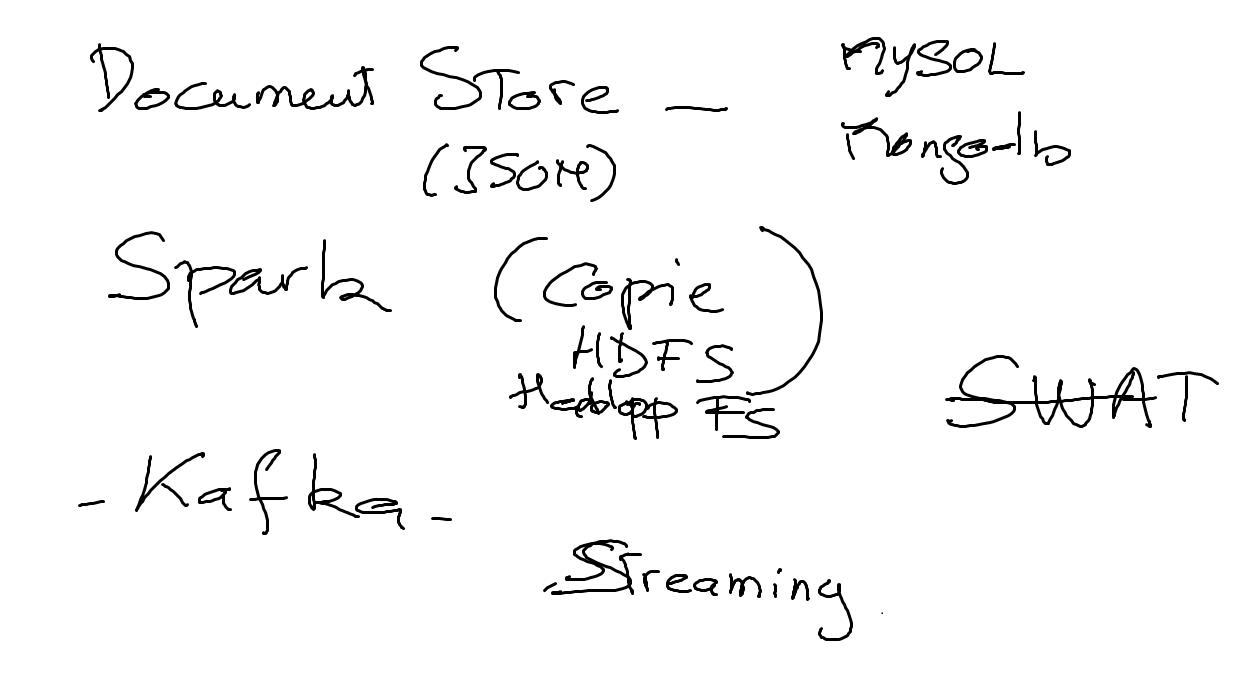 Document Store — MySQL
(JSON) Mongodb
Spark (Copie
HDFS
Haddopp FS)
SWAT
- Kafka -
Streaming